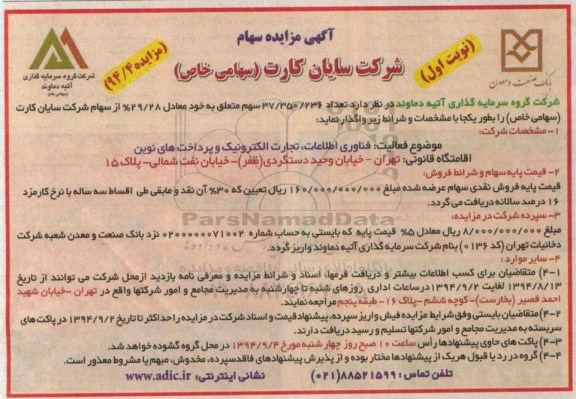 آگهی مزایده سهام
شرکت سایان کارت (سهامی خاص)
(نوبت اول)
(مزایده ۹۴/۴)
بانک صنعت و معدن
شرکت گروه سرمایه گذاری
آتیه دماوند
(سهامی عام)
شرکت گروه سرمایه گذاری آتیه دماوند در نظر دارد تعداد ۳۷/۳۵۰/۲۳۶ سهم متعلق به خود معادل ۲۹/۲۸% از سهام شرکت سایان کارت
(سهامی خاص) را بطور یکجا با مشخصات و شرایط زیر واگذار نماید:
۱- مشخصات شرکت:
موضوع فعالیت: فناوری اطلاعات، تجارت الکترونیک و پرداخت های نوین
اقامتگاه قانونی: تهران - خیابان وحید دستگردی(ظفر)- خیابان نفت شمالی- پلاک ۱۵
۲- قیمت پایه سهام و شرائط فروش:
قیمت پایه فروش نقدی سهام عرضه شده مبلغ ۱۶۰/۰۰۰/۰۰۰/۰۰۰ ریال تعیین که ۳۰% آن نقد و مابقی طی اقساط سه ساله با نرخ کارمزد
۱۶ درصد سالانه دریافت می گردد.
۳- سپرده شرکت در مزایده:
مبلغ ۸/۰۰۰/۰۰۰/۰۰۰ ریال معادل ۵% قیمت پایه که بایستی به حساب شماره ۰۲۰۰۰۰۰۰۷۱۰۰۲ نزد بانک صنعت و معدن شعبه شرکت
دخانیات تهران (کد ۰۱۳۶) بنام شرکت سرمایه گذاری آتیه دماوند واریز گردد.
۴- سایر موارد:
۴-۱) متقاضیان برای کسب اطلاعات بیشتر و دریافت فرمها، اسناد و شرائط مزایده و معرفی نامه بازدید ازمحل شرکت می توانند از تاریخ
۱۳۹۴/۸/۱۳ لغایت ۱۳۹۴/۹/۲ درساعات اداری روزهای شنبه تا چهارشنبه به مدیریت مجامع و امور شرکتها واقع در تهران -خیابان شهید
احمد قصیر (بخارست)- کوچه ششم -پلاک ۱۶- طبقه پنجم مراجعه نمایند.
۴-۲) متقاضیان بایستی وفق شرایط مزایده فیش واریز سپرده، پیشنهاد قیمت و اسناد شرکت در مزایده را حداکثر تا تاریخ ۱۳۹۴/۹/۲ در پاکت های
سربسته به مدیریت مجامع و امور شرکتها تسلیم و رسید دریافت دارند.
۴-۳) پاکت های حاوی پیشنهادها رأس ساعت ۱۰ صبح روز چهارشنبه مورخ ۱۳۹۴/۹/۴ در محل گروه گشوده خواهد شد.
۴-۴) گروه در رد یا قبول هریک از پیشنهادها مختار بوده و از پذیرش پیشنهادهای فاقد سپرده، مخدوش، مبهم یا مشروط معذور است.
تلفن تماس : ۸۸۵۲۱۵۹۹(۰۲۱) نشانی اینترنتی: www.adic.ir
ParsNamadData